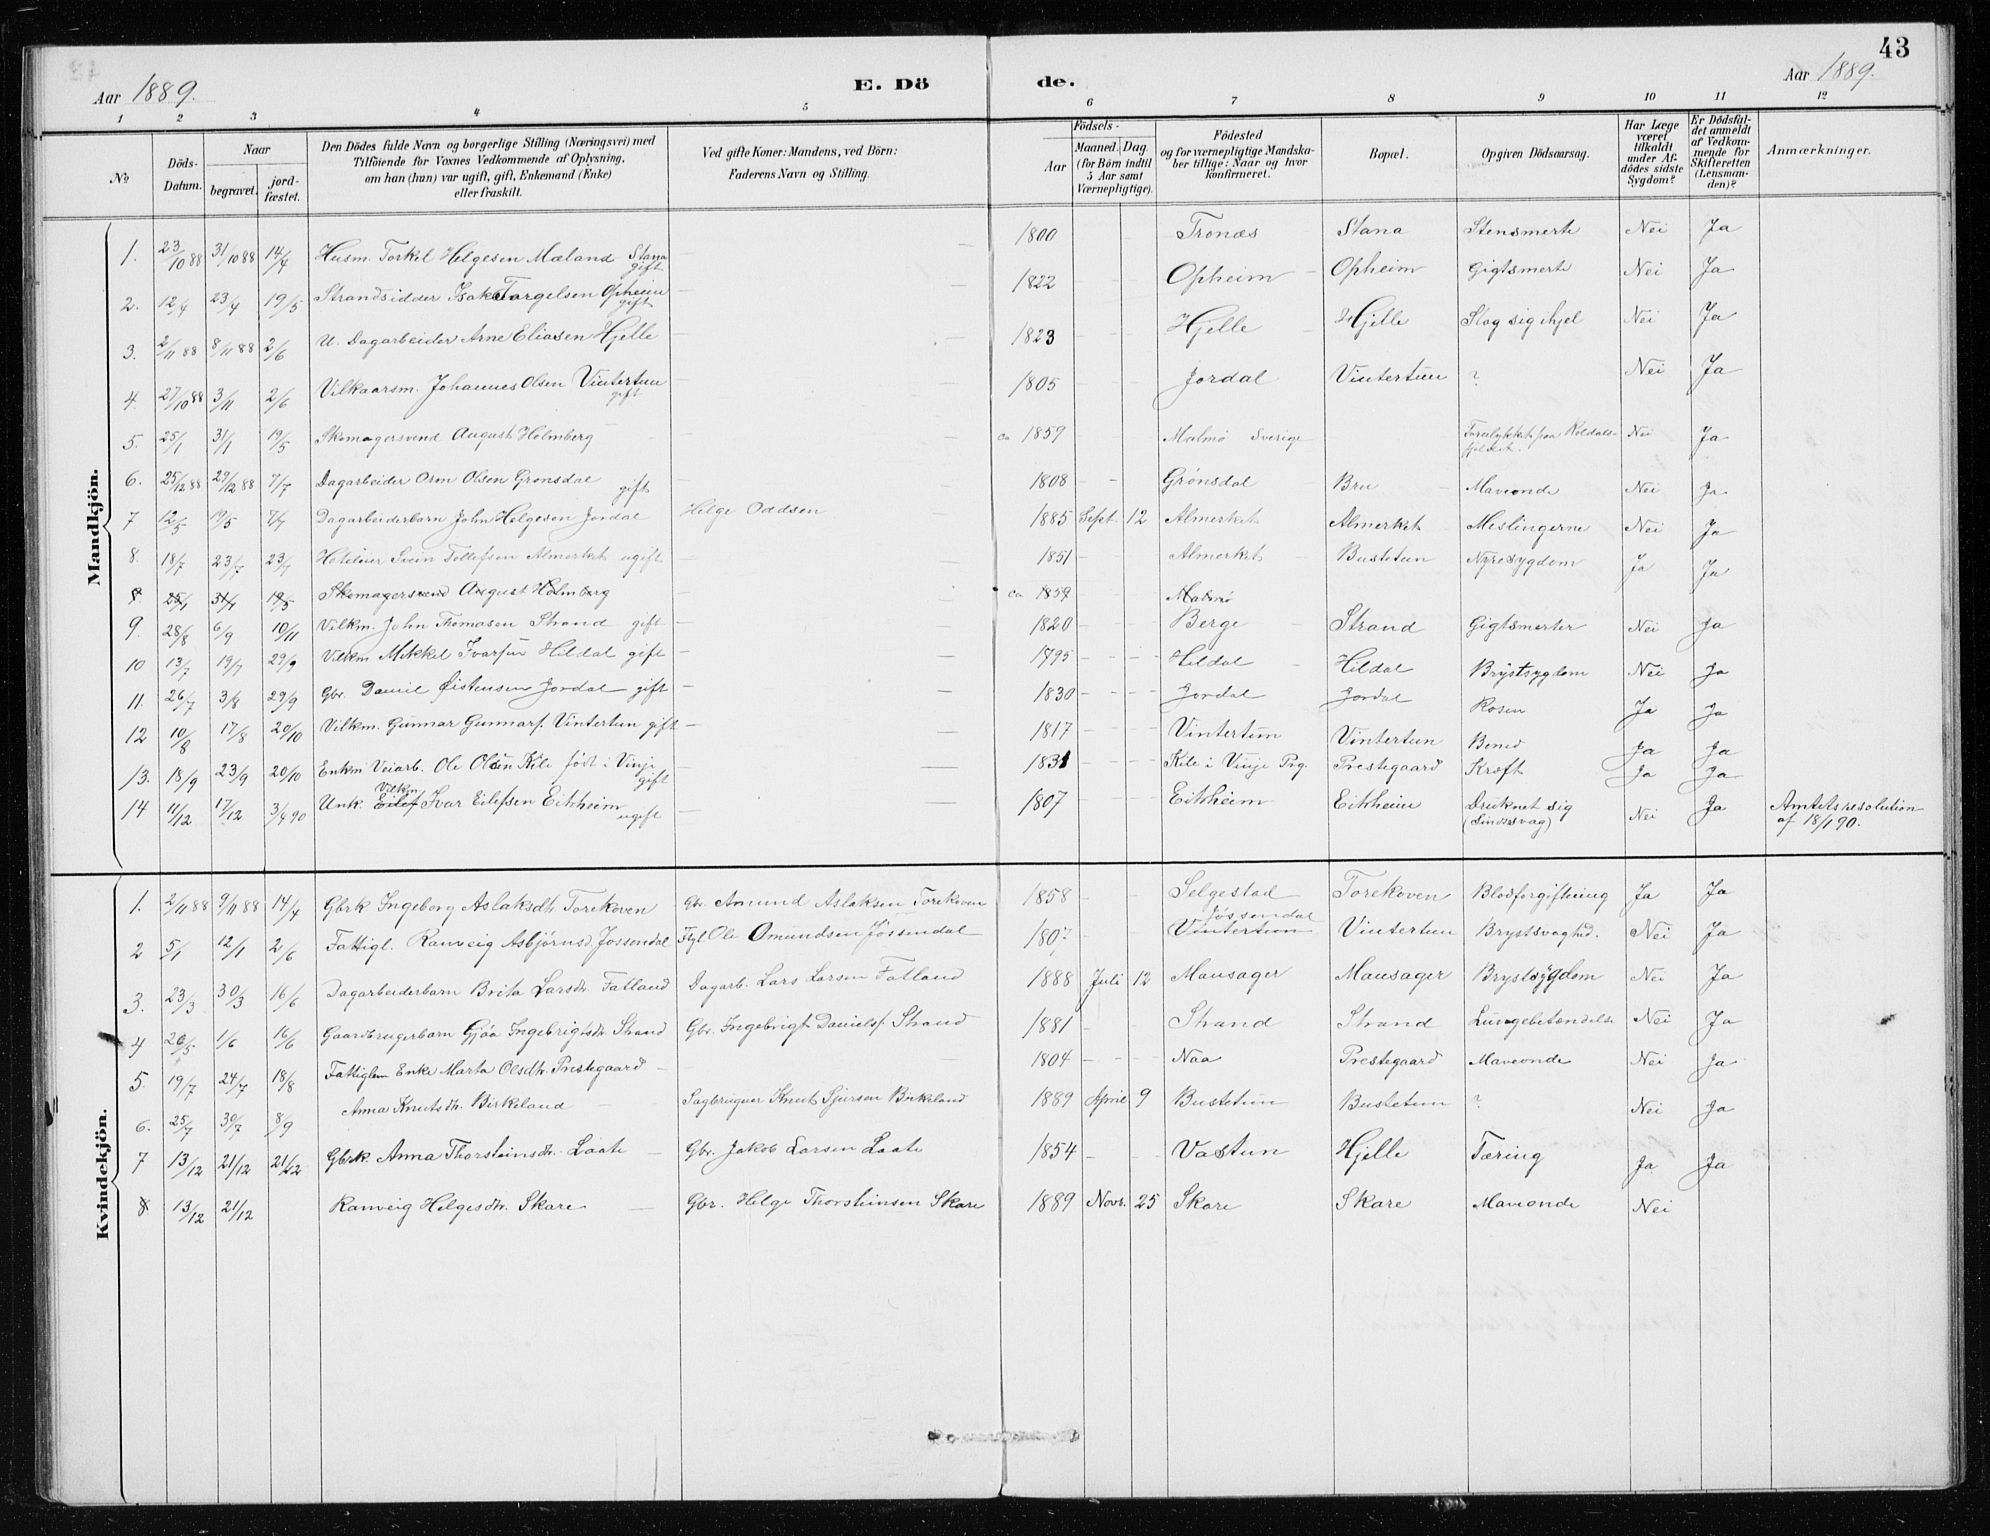 43
Aar 1889. E. Dö de. Aar 1889.
1 2 3 4 5 6 7 8 9 10 11 12
No
Döds-Datum.
Naar
begravet.
jord-fæstet.
Den Dödes fulde Navn og borgerlige Stilling (Næringsvei) med
Tilföiende for Voxnes Vedkommende af Oplysning,
om han (hun) var ugift, gift, Enkemand (Enke)
eller fraskilt.
Ved gifte Koner: Mandens, ved Börn:
Faderens Navn og Stilling.
Födsels-
Aar
Maaned. Dag
(for Börn indtil
5 Aar samt
Værnepligtige).
Födested
og for værnepligtige Mandska-
ber tillige: Naar og hvor
konfirmeret.
Bopæl.
Opgiven Dödsaarsag.
Har Læge
været
tilkaldt
under Af-
dödes sidste
Sygdom?
Er Dödsfal-
det anmeldt
af Vedkom-
mende for
Skifteretten
(Lensman-
den)?
Anmærkninger.
Mandkjön.
1. 23/10 88 31/10 88 14/4 Husm. Torkel Helgesen Mæland Stana gift — 1800 Tronæs Stana Stensmerte Nei Ja
2. 12/4 23/4 19/5 Strandsidder Isak Torgelsen Opheim gift — 1822 Opheim Opheim Gigtsmerte Nei Ja
3. 2/11 88 8/11 88 2/6 U. Dagarbeider Arne Eliasen Hjelle — 1823 Hjelle Hjelle Slog sig ihjel Nei Ja
4. 27/10 88 3/11 2/6 Vilkaarsm. Johannes Olsen Vintertun gift — 1805 Jordal Vintertun ? Nei Ja
5. 25/1 31/1 19/5 Skomagersvend August Holmberg — ca 1859 Malmø Sverige Forulykket paa Roldals-fjeldet. Nei Ja
6. 25/12 88 29/12 88 7/7 Dagarbeider Orm Olsen Grønsdal gift — 1808 Grønsdal Bru Maveonde Nei Ja
7 12/5 19/5 7/7 Dagarbeiderbarn John Helgesen Jordal Helge Oddsen 1885 Sept. 12 Almerket Almerket Meslingerne Nei Ja
8. 18/7 23/7 23/7 Hoteleier Svein Tollefsen Almerket ugift — 1851 Almerket Bustetun Nyresygdom Ja Ja
9. 25/1 31/1 19/5 Skomagersvend August Holmberg ca 1859 Malmø
9. 28/8 6/9 10/11 Vilkm. John Thomasen Strand gift — 1820 Berge Strand Gigtsmerter Nei Ja
10 13/7 19/7 29/9 Vilkm Mikkel Ivarsen Hildal gift — 1795 Hildal Hildal Brystsygdom Nei Ja
11. 26/7 3/8 29/9 Gbr. Daniel Øistensen Jordal gift — 1830 Jordal Jordal Rosen Ja Ja
12 10/8 17/8 20/10 Vilkm. Gunnar Gunnars. Vintertun gift — 1817 Vintertun Vintertun Bened Ja Ja
13. 18/9 23/9 20/10 Enkm Veiarb. Ole Olsen Kile født i Vinje gift — 1831 Kile i Vinje Prg. Prestegaard Kræft Ja Ja
14 11/12 17/12 3/4 90 Unk. Vilkm Eilef Ivar Eilefsen Eitrheim ugift — 1807 Eitrheim Eitrheim Druknet sig (Sindssvag) Nei Ja Amtets resolution af 18/1 90.
Kvindekjön.
1. 2/11 88 9/11 88 14/4 Gbrk Ingeborg Aslaksdtr. Torekoven Gbr. Amund Aslaksen Torekoven 1858 Selgestad Torekoven Blodforgiftning Ja Ja
2 5/1 12/1 2/6 Fattigl. Ranveig Asbjørnsd. Jøssendal Ftgl Ole Omundsen Jøssendal 1807 Jøssendal Vintertun Vintertun Brystsvaghed. Nei Ja
3. 23/3 30/3 16/6 Dagarbeiderbarn Brita Larsdtr. Fatland Dagarb. Lars Larsen Fatland 1888 Juli 12 Mausager Mausager Brystsygdom Nei Ja
4 26/5 1/6 16/6 Gaardbrugerbarn Gjøa Ingebrigtsdtr. Strand Gbr. Ingebrigt Daniels. Strand 1881 Strand Strand Lungebetændelse Nei Ja
5. 19/7 24/7 18/8 Fattiglem Enke Marta Olsdtr. Prestegaard — 1804 Naa Prestegaard Maveonde Nei Ja
6. 25/7 30/7 8/9 Anna Knutsdtr. Birkeland Sagbruguer Knut Sjursen Birkeland 1889 April 9 Bustetun Bustetun ? Nei Ja
7 13/12 21/12 21/12 Gbrk. Anna Thorsteinsdtr. Laate Gbr. Jakob Larsen Laate 1854 Vastun Hjelle Tæring Ja Ja
8. 13/12 21/12 Ranveig Helgesdtr. Skare Gbr. Helge Thorsteinsen Skare 1889 Novr. 25 Skare Skare Maveonde Nei